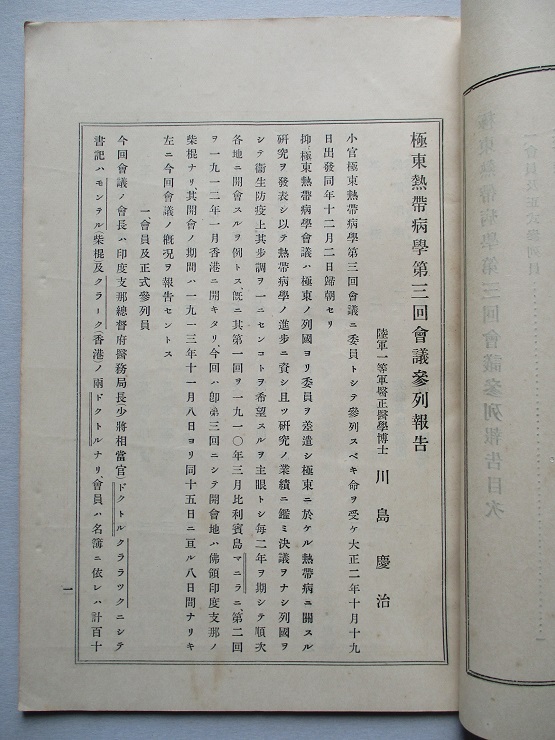 極東熱帶病學第三回會議參列報告
陸軍一等軍醫正醫學博士 川島慶治
小官極東熱帶病學第三回會議ニ委員トシテ參列スベキ命ヲ受ケ大正二年十月十九
日出發同年十二月二日歸朝セリ
抑〻極東熱帶病學會議ハ極東ノ列國ヨリ委員ヲ差遣シ極東ニ於ケル熱帶病ニ關スル
硏究ヲ發表シ以テ熱帶病學ノ進步ニ資シ且ツ硏究ノ業績ニ鑑ミ決議ヲナシ列國ヲ
シテ衞生防疫上其步調ヲ一ニセンコトヲ希望スルヲ主眼トシ每二年ヲ期シテ順次
各地ニ開會スルヲ例トス、旣ニ其第一回ヲ一九一〇年三月比利賓島マニラニ、第二回
ヲ一九一二年一月香港ニ開キタリ、今回ハ卽第三回ニシテ開會地ハ佛領印度支那ノ
柴棍ナリ、其開會ノ期間ハ一九一三年十一月八日ヨリ同十五日ニ亘ル八日間ナリキ
左ニ今回會議ノ槪況ヲ報告セントス
一、會員及正式參列員
今回會議ノ會長ハ印度支那總督府醫務局長(少將相當官)ドクトルクララックニシテ
書記ハモンテル(柴棍)及クラーク(香港)ノ兩ドクトルナリ、會員ハ名簿ニ依レハ計百十
一